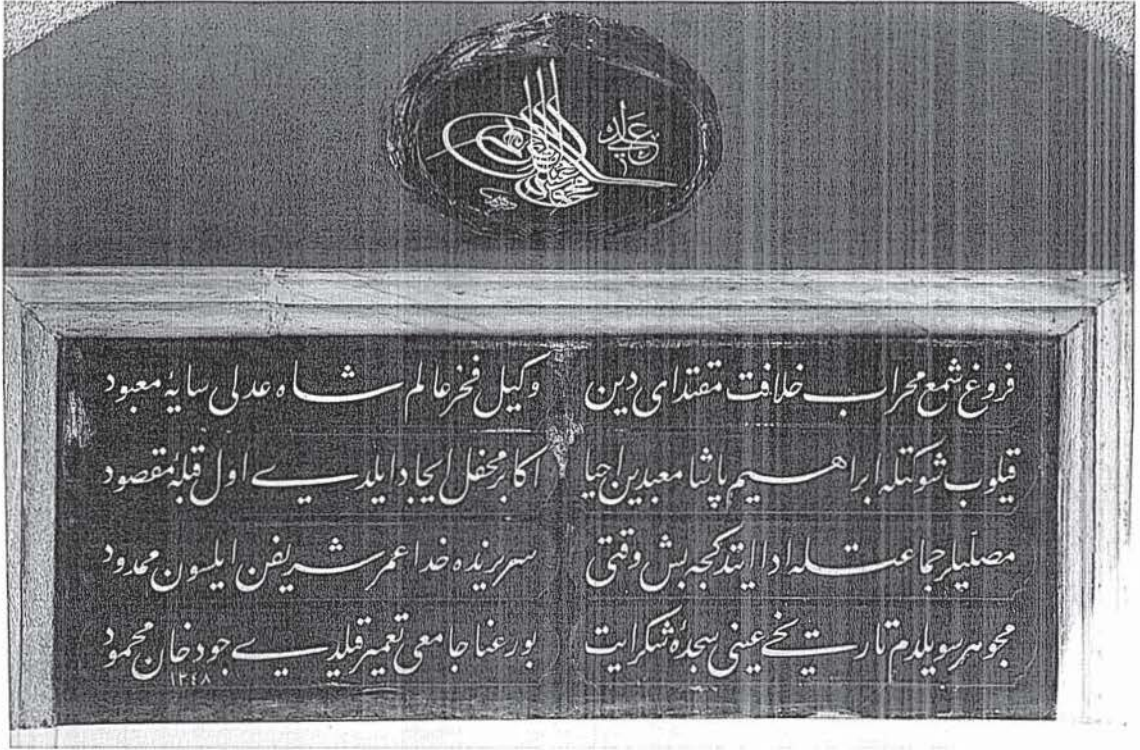 عدلی
فروغ شمع محراب خلافت مقتدای دین وكیل فخر عالم شاه عدلی سایهٔ معبود
قیلوب شوكتله ابراهیم پاشا معبدین احیا اكابر محفل ایجاد ایلدی اول قبلهٔ مقصود
مصلیلر جماعتله ادا ایتدكجه بش وقتی سریرنده خدا عمر شریفن ایلسون ممدود
مجوهر سویلدم تاریخی عینی سجدهٔ شكر ایت بو رعنا جامعی تعمیر قیلدی جود خان محمود
١٢٤٨